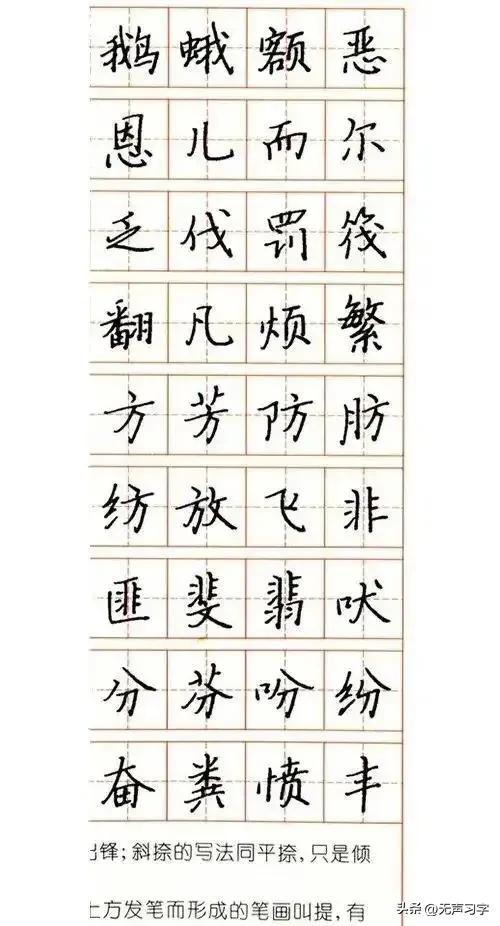 鹅蛾额恶
恩儿而尔
乏伐罚筏
翻凡烦繁
方芳防肪
纺放飞非
匪斐翡吠
分芬吩纷
奋粪愤丰
出锋；斜捺的写法同平捺，只是倾
上方发笔而形成的笔画叫提，有
头条 @无声习字